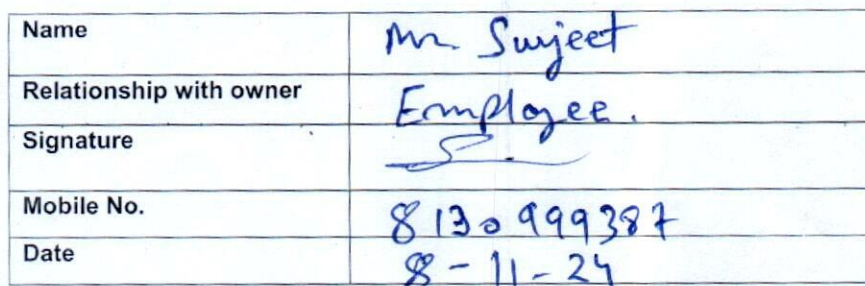 Name Mr. Surjeet
Relationship with owner Employee.
Signature
Mobile No. 8130999387
Date 8-11-24